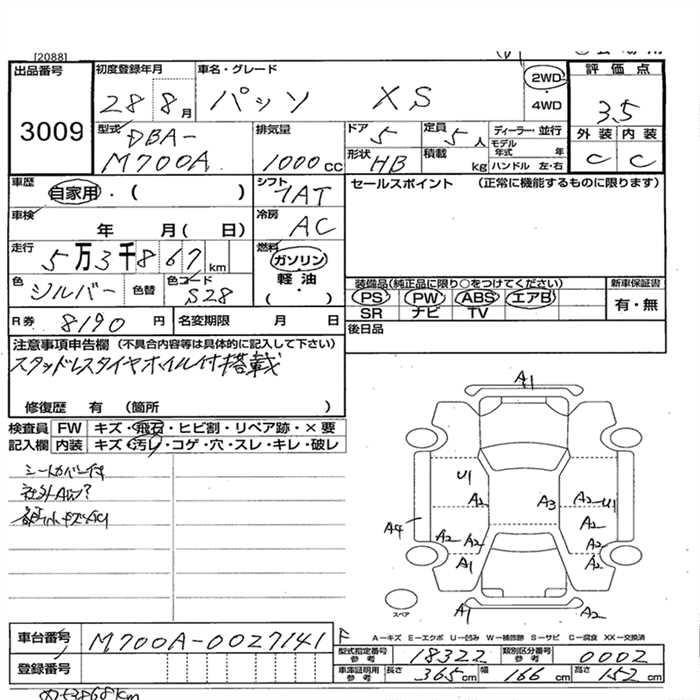 [2088]
出品番号
3009
初度登録年月
28 8月
車名・グレード
パッソ XS
2WD
・
4WD
評価点
3.5
外装 内装
C C
型式
DBA-
M700A
排気量
1000cc
ドア
5
定員
5人
形状
HB
積載
kg
ディーラー・並行
モデル年式 年
ハンドル 左・右
車歴
自家用・( )
シフト
7AT
車検
年 月( 日)
冷房
AC
走行
5万3千867km
燃料
ガソリン
軽油
( ・ )
色
シルバー
色替
色コード
S28
R券 8190円
名変期限 月 日
セールスポイント (正常に機能するものに限ります)
装備品(純正品に限り○をつけてください)
PS PW ABS エアB
SR ナビ TV
新車保証書
有・無
後日品
注意事項申告欄 (不具合内容等は具体的に記入して下さい)
スタッドレスタイヤホイル付搭載
修復歴 有 (箇所 )
検査員 FW キズ・飛石・ヒビ割・リペア跡・×要
記入欄 内装 キズ・汚レ・コゲ・穴・スレ・キレ・破レ
シートカバー付
社外AW?
A1
U1
A2
A3
A2
U1
A2
A4
A2
A2
A2
A1
A2
A1
A2
スペア
A−キズ E−エクボ U−凹み W−補修跡 S−サビ C−腐食 XX−交換済
車台番号
M700A-0027141
F
登録番号
型式指定番号
参考
18322
類別区分番号
参考
0002
車庫証明用
参考
長さ 365cm
幅 166cm
高さ 152cm